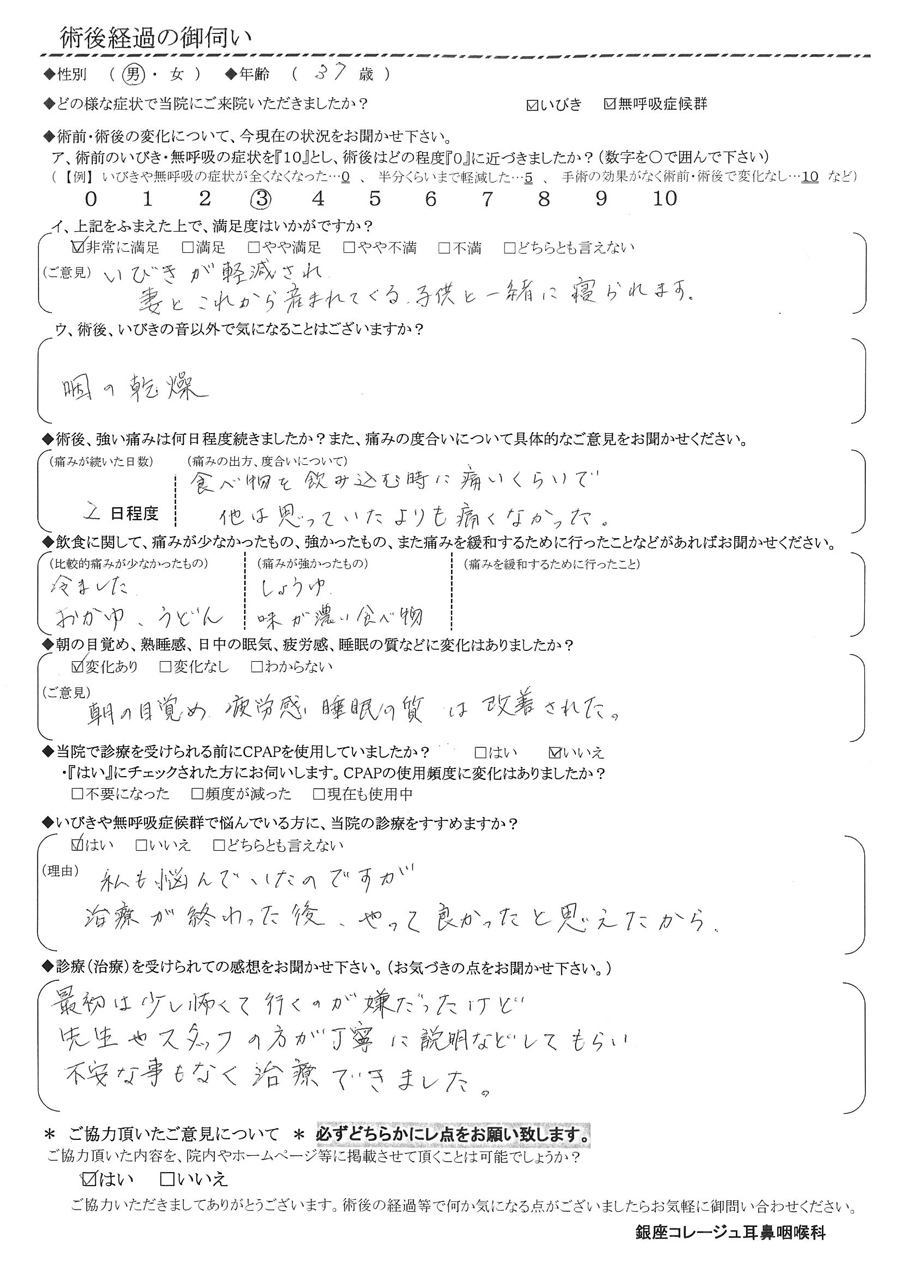 術後経過の御伺い
◆性別 ( 男 ・ 女 ) ◆年齢 ( 37 歳 )
◆どの様な症状で当院にご来院いただきましたか? ☑いびき ☑無呼吸症候群
◆術前・術後の変化について、今現在の状況をお聞かせ下さい。
ア、術前のいびき・無呼吸の症状を『10』とし、術後はどの程度『0』に近づきましたか?(数字を○で囲んで下さい)
(【例】いびきや無呼吸の症状が全くなくなった…0 、 半分くらいまで軽減した…5 、 手術の効果がなく術前・術後で変化なし…10 など)
0 1 2 3 4 5 6 7 8 9 10
イ、上記をふまえた上で、満足度はいかがですか?
☑非常に満足 □満足 □やや満足 □やや不満 □不満 □どちらとも言えない
(ご意見) いびきが軽減され
妻とこれから産まれてくる子供と一緒に寝られます。
ウ、術後、いびきの音以外で気になることはございますか?
咽の乾燥
◆術後、強い痛みは何日程度続きましたか?また、痛みの度合いについて具体的なご意見をお聞かせください。
(痛みが続いた日数) (痛みの出方、度合いについて)
食べ物を飲み込む時に痛いくらいで
2 日程度 他は思っていたよりも痛くなかった。
◆飲食に関して、痛みが少なかったもの、強かったもの、また痛みを緩和するために行ったことなどがあればお聞かせください。
(比較的痛みが少なかったもの) (痛みが強かったもの) (痛みを緩和するために行ったこと)
冷ました しょうゆ
おかゆ、うどん 味が濃い食べ物
◆朝の目覚め、熟睡感、日中の眠気、疲労感、睡眠の質などに変化はありましたか?
☑変化あり □変化なし □わからない
(ご意見) 朝の目覚め 疲労感 睡眠の質 は 改善された。
◆当院で診療を受けられる前にCPAPを使用していましたか? □はい ☑いいえ
・『はい』にチェックされた方にお伺いします。CPAPの使用頻度に変化はありましたか?
□不要になった □頻度が減った □現在も使用中
◆いびきや無呼吸症候群で悩んでいる方に、当院の診療をすすめますか?
☑はい □いいえ □どちらとも言えない
(理由) 私も悩んでいたのですが
治療が終わった後、やって良かったと思えたから。
◆診療(治療)を受けられての感想をお聞かせ下さい。(お気づきの点をお聞かせ下さい。)
最初は少し怖くて行くのが嫌だったけど
先生やスタッフの方が丁寧に説明などしてもらい
不安な事もなく治療できました。
* ご協力頂いたご意見について * 必ずどちらかにレ点をお願い致します。
ご協力頂いた内容を、院内やホームページ等に掲載させて頂くことは可能でしょうか?
☑はい □いいえ
ご協力いただきましてありがとうございます。術後の経過等で何か気になる点がございましたらお気軽に御問い合わせください。
銀座コレージュ耳鼻咽喉科